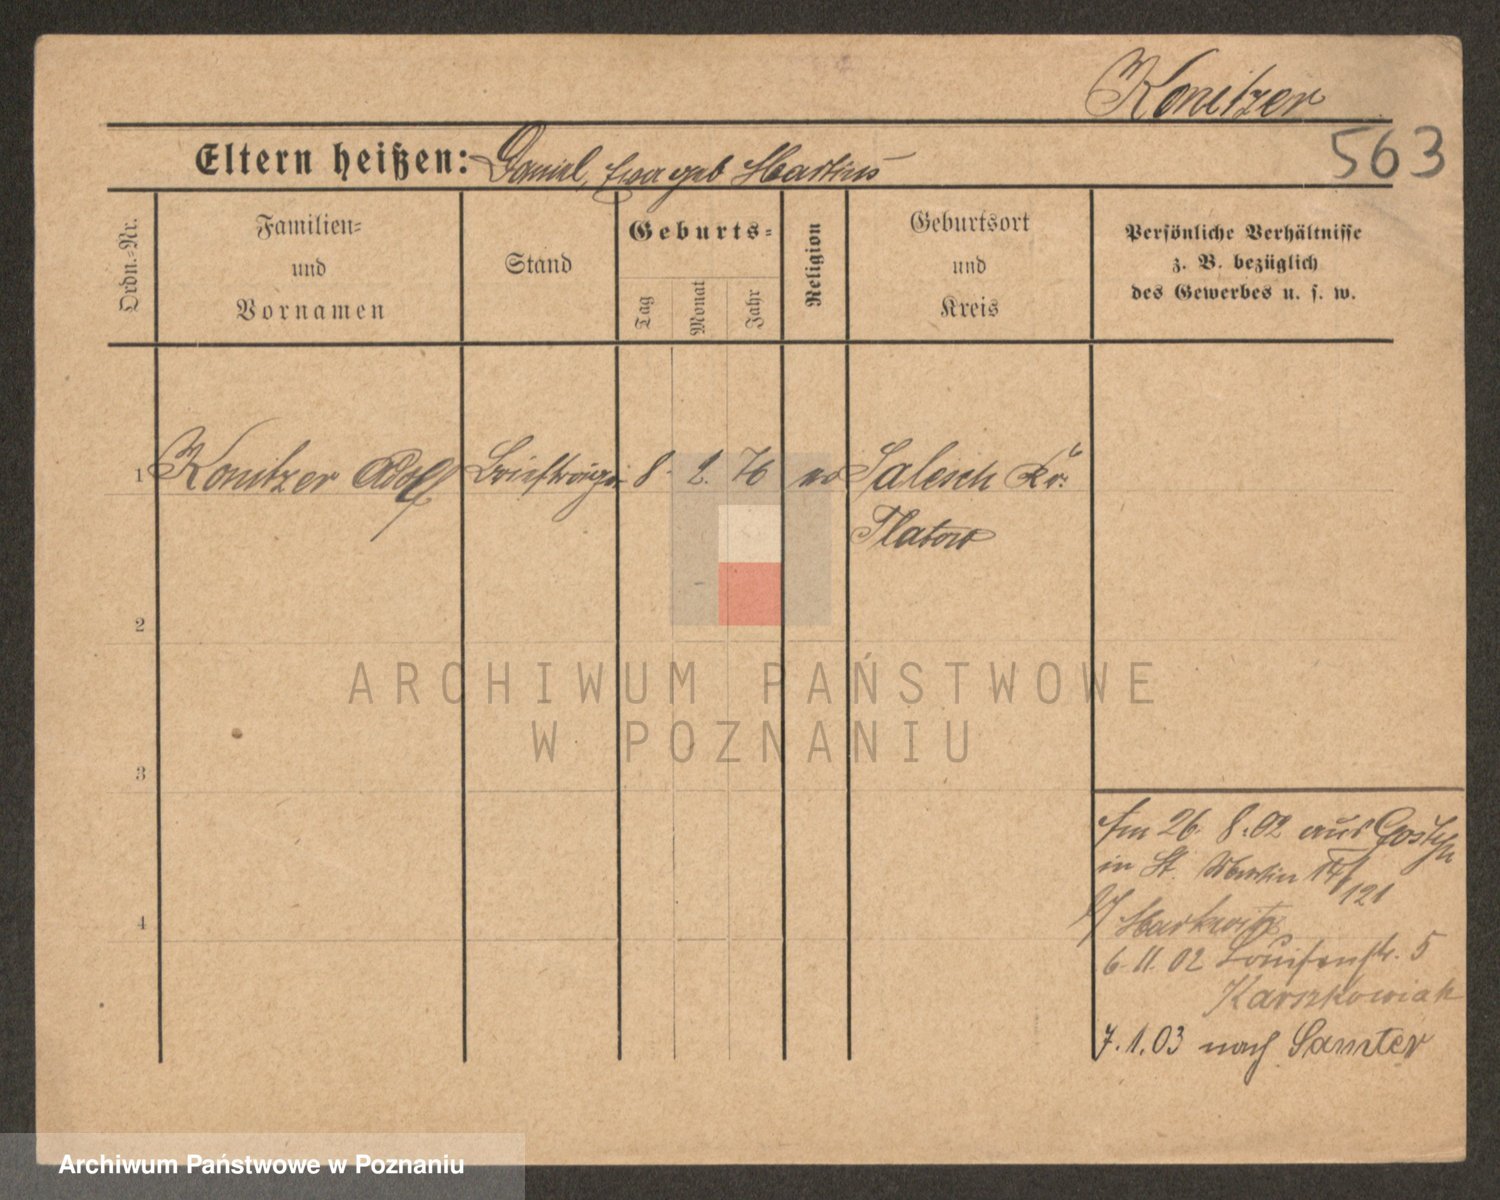 Konitzer
563
Eltern heißen: Daniel, Eva geb Martins
Ordn.-Nr.
Familien-
und
Vornamen
Stand
Geburts-
Tag
Monat
Jahr
Religion
Geburtsort
und
Kreis
Persönliche Verhältnisse
z. B. bezüglich
des Gewerbes u. s. w.
1 Konitzer Adolf Briefträger 8. 2. 76 ev Salesch Kr.
Flatow
2
3
4
26. 8. 02 aus Gostyn
in St. Martin
121
Markwitz
6. 11. 02 Louisenstr. 5
Karszkowiak
7. 1. 03 nach Samter
ARCHIWUM PAŃSTWOWE
W POZNANIU
Archiwum Państwowe w Poznaniu